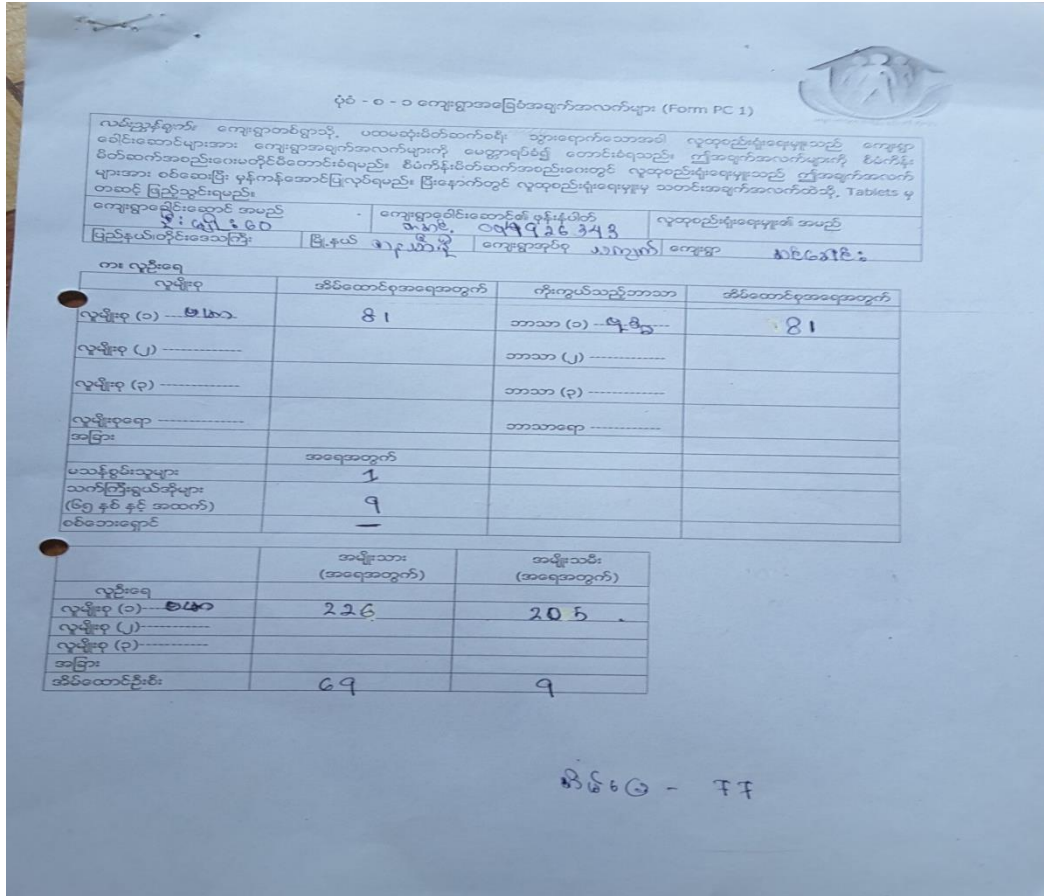 ပုံစံ - ၀ - ၁ ကျေးရွာအခြေခံအချက်အလက်များ (Form PC 1)
လမ်းညွှန်ချက်။ ကျေးရွာတစ်ရွာသို့ ပထမဆုံးမိတ်ဆက်ခရီး သွားရောက်သောအခါ လူထုစည်းရုံးရေးမှူးသည် ကျေးရွာ
ခေါင်းဆောင်များအား ကျေးရွာအချက်အလက်များကို မေတ္တာရပ်ခံ၍ တောင်းခံရသည်။ ဤအချက်အလက်များကို စီမံကိန်း
မိတ်ဆက်အစည်းဝေးမတိုင်မီတောင်းခံရမည်။ စီမံကိန်းမိတ်ဆက်အစည်းဝေးတွင် လူထုစည်းရုံးရေးမှူးသည် ဤအချက်အလက်
များအား စစ်ဆေးပြီး မှန်ကန်အောင်ပြုလုပ်ရမည်။ ပြီးနောက်တွင် လူထုစည်းရုံးရေးမှူးမှ သတင်းအချက်အလက်ထဲသို့ Tablets မှ
တဆင့် ဖြည့်သွင်းရမည်။
ကျေးရွာခေါင်းဆောင် အမည် - ကျေးရွာခေါင်းဆောင်၏ ဖုန်းနံပါတ် လူထုစည်းရုံးရေးမှူး၏ အမည်
ပြည်နယ်/တိုင်းဒေသကြီး မြို့နယ် ကျေးရွာအုပ်စု ကျေးရွာ
ကား လူဦးရေ
လူမျိုးစု အိမ်ထောင်စုအရေအတွက် ကိုးကွယ်သည့်ဘာသာ အိမ်ထောင်စုအရေအတွက်
လူမျိုးစု (၁) ---ဗမာ 81 ဘာသာ (၁) --ဗုဒ္ဓ--- 81
လူမျိုးစု (၂) ------------- ဘာသာ (၂) -------------
လူမျိုးစု (၃) ------------- ဘာသာ (၃) -------------
လူမျိုးစုရော -------------- ဘာသာရော ------------
အခြား
အရေအတွက်
မသန်စွမ်းသူများ 1
သက်ကြီးရွယ်အိုများ
(၆၅ နှစ် နှင့် အထက်) 9
စစ်ဘေးရှောင် —
အမျိုးသား အမျိုးသမီး
(အရေအတွက်) (အရေအတွက်)
လူဦးရေ
လူမျိုးစု (၁)---ဗမာ 226 205
လူမျိုးစု (၂)-----------
လူမျိုးစု (၃)-----------
အခြား
အိမ်ထောင်ဦးစီး 69 9
အိမ်ခြေ - 77